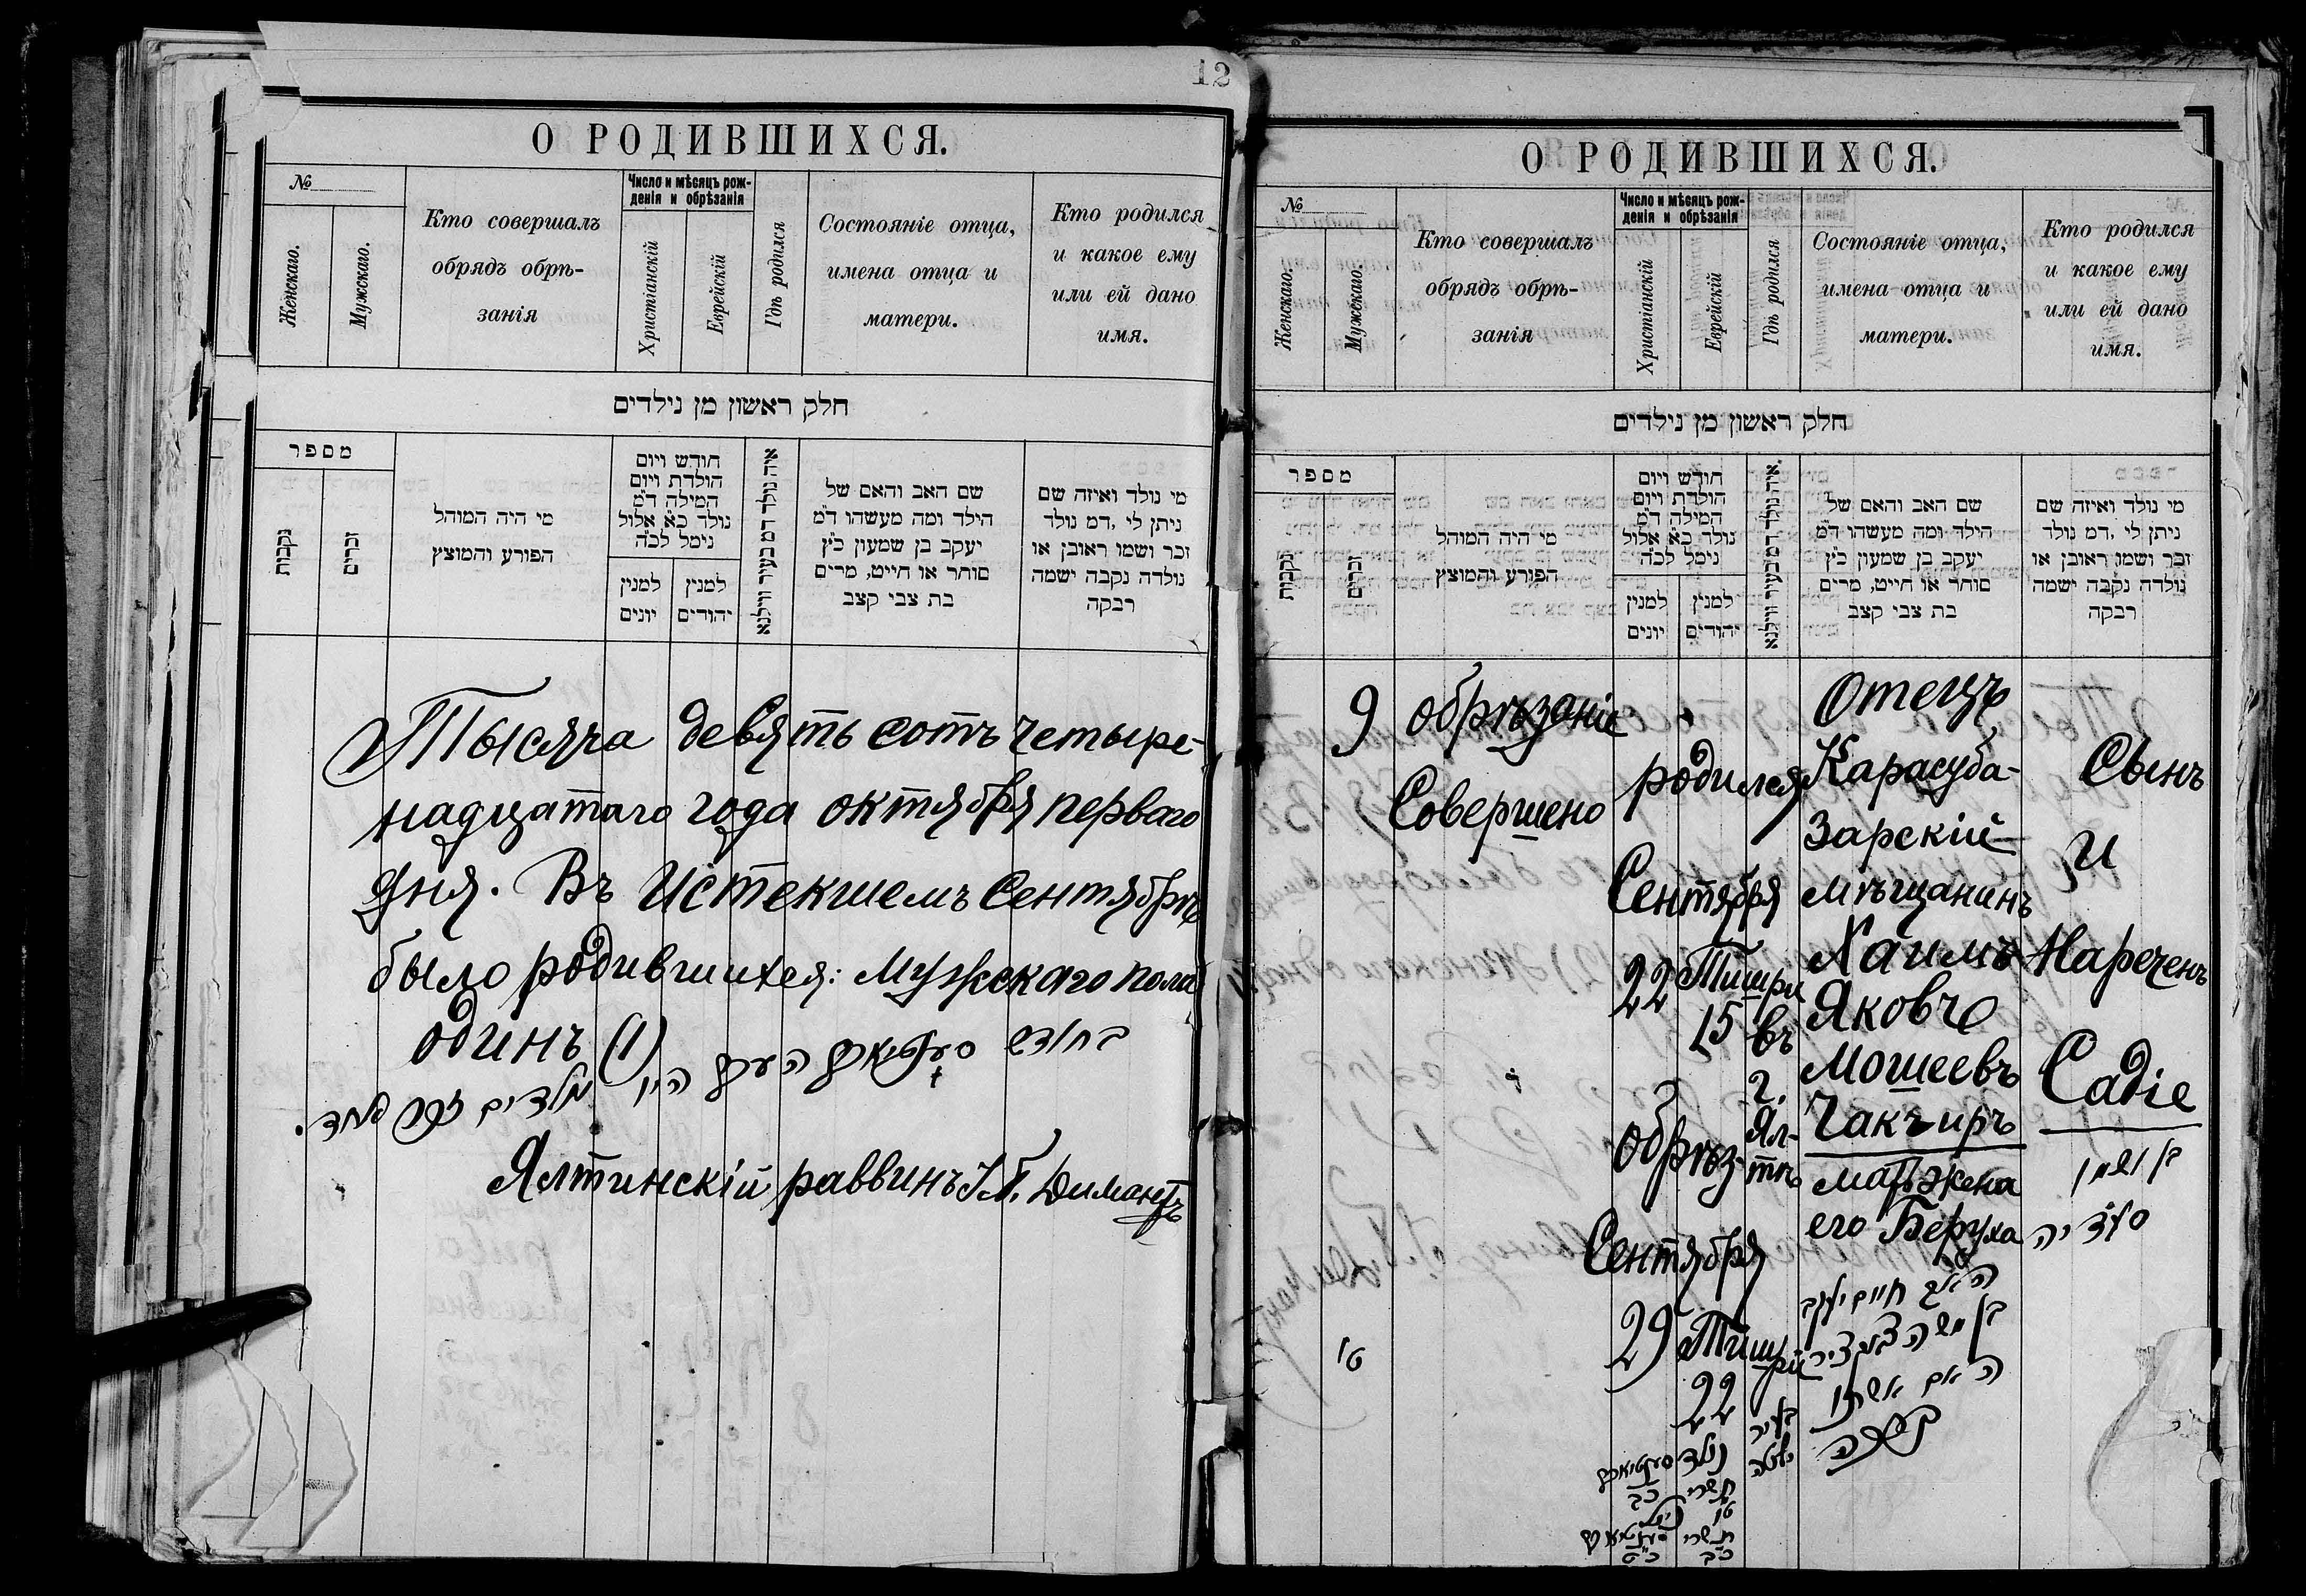 12
О РОДИВШИХСЯ.
№
Женскаго.
Мужскаго.
Кто совершалъ
обрядъ обрѣ-
занія
Число и мѣсяцъ рож-
денія и обрѣзанія
Христіанскій
Еврейскій
Гдѣ родился
Состояніе отца,
имена отца и
матери.
Кто родился
и какое ему
или ей дано
имя.
חלק ראשון מן נילדים
מספר
נקבות
זכרים
מי היה המוהל
הפורע והמוצץ
חודש ויום
הולדת ויום
המילה ד״מ
נולד כא אלול
נימל לכ״ה
למנין
יונים
למנין
יהודים
איה נולד דמ בעיר ווילנא
שם האב והאם של
הילד ומה מעשהו ד״מ
יעקב בן שמעון כ״ץ
סוחר או חייט, מרים
בת צבי קצב
מי נולד ואיזה שם
ניתן לי, דמ נולד
זכר ושמו ראובן או
נולדה נקבה ישמה
רבקה
Тысяча девять сотъ четыре-
надцатаго года октября перваго
дня. Въ Истекшемъ Сентябрѣ
было родившихся: Мужскаго пола
одинъ (1)
בחודש
היו נולדים זכר אחד.
Ялтинскій раввинъ Димантъ
О РОДИВШИХСЯ.
№
Женскаго.
Мужскаго.
Кто совершалъ
обрядъ обрѣ-
занія
Число и мѣсяцъ рож-
денія и обрѣзанія
Христіанскій
Еврейскій
Гдѣ родился
Состояніе отца,
имена отца и
матери.
Кто родился
и какое ему
или ей дано
имя.
חלק ראשון מן נילדים
מספר
נקבות
זכרים
מי היה המוהל
הפורע והמוצץ
חודש ויום
הולדת ויום
המילה ד״מ
נולד כא אלול
נימל לכ״ה
למנין
יונים
למנין
יהודים
איה נולד דמ בעיר ווילנא
שם האב והאם של
הילד ומה מעשהו ד״מ
יעקב בן שמעון כ״ץ
סוחר או חייט, מרים
בת צבי קצב
מי נולד ואיזה שם
ניתן לי, דמ נולד
זכר ושמו ראובן או
נולדה נקבה ישמה
רבקה
9
ט׳
обрѣзаніе
Совершено
родился
Сентября
22
Тишри
15
обрѣз-
Сентября
29
Тишрій
22
נולד
תשרי
כב
טו
תשרי
כ״ט
כ״ב
въ
г.
Ял-
тѣ
בעיר
יאלטה
Отецъ
Карасуба-
Зарскій
мѣщанинъ
Хаимъ
Яковъ
Мошеевъ
Чакъиръ
мать жена
его Беруха
האב חיים יעקב
בן משה
האם אשתו
ברוכה
Сынъ
и
Нареченъ
Садіе
בן ושמו
סעדיה